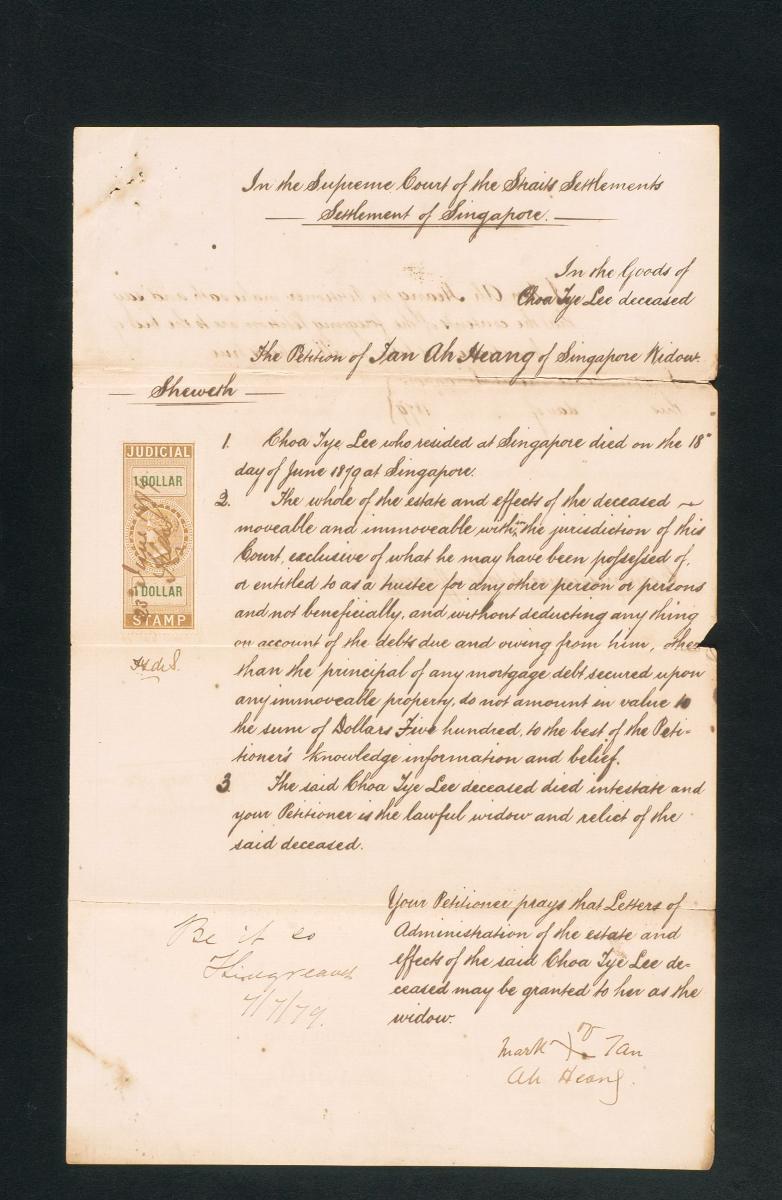 In the Supreme Court of the Straits Settlements
Settlement of Singapore.
In the Goods of
Choa Tye Lee deceased
The Petition of Tan Ah Heang of Singapore Widow
Sheweth
1. Choa Tye Lee who resided at Singapore died on the 18"
day of June 1879 at Singapore.
2. The whole of the estate and effects of the deceased
moveable and immoveable within the jurisdiction of this
Court, exclusive of what he may have been possessed of,
or entitled to as a trustee for any other person or persons
and not beneficially, and without deducting any thing
on account of the debts due and owing from him, other
than the principal of any mortgage debt secured upon
any immoveable property, do not amount in value to
the sum of Dollars Five hundred, to the best of the Peti-
tioner's knowledge information and belief.
3. The said Choa Tye Lee deceased died intestate and
your Petitioner is the lawful widow and relict of the
said deceased.
JUDICIAL
1 DOLLAR
1 DOLLAR
STAMP
Your Petitioner prays that Letters of
Administration of the estate and
effects of the said Choa Tye Lee de-
ceased may be granted to her as the
widow.
Be it so
7/7/79.
mark X of Tan
Ah Heang.